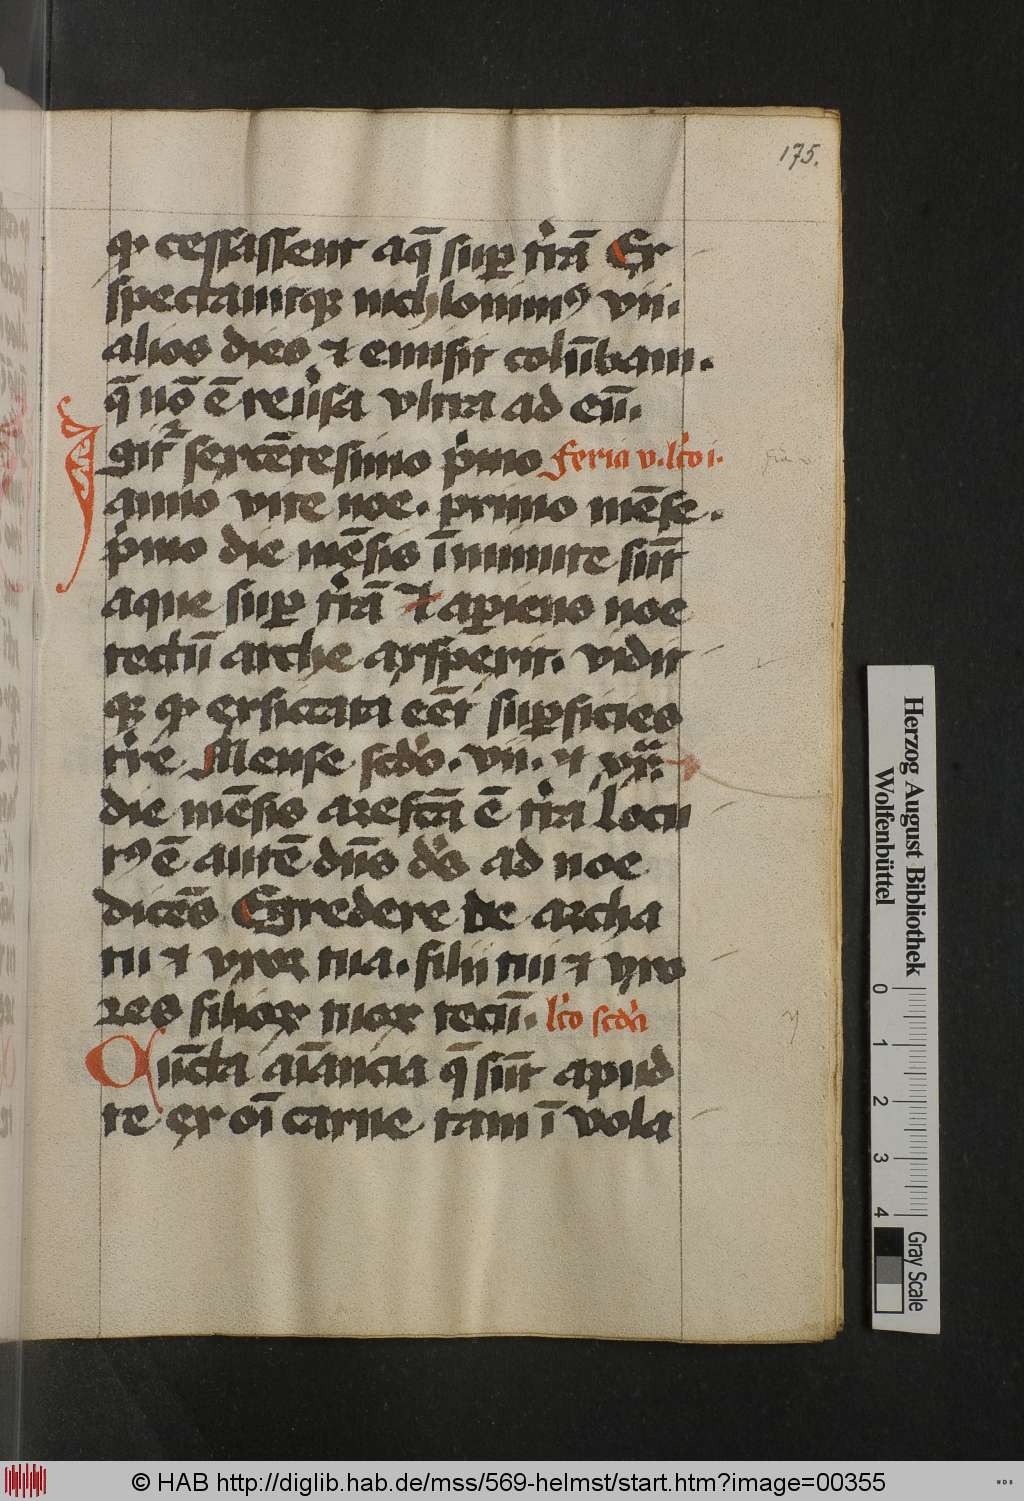 175.
qꝛ cessassent aq̄ suꝑ t'rā Ex
spectauitqꝫ nichilominꝰ vii.
alios dies ⁊ emisit colūbam.
q̄ nō ē reu'sa vltra ad eū.
Igit᷑ sexcētesimo p'mo feria v. lc̄o i.
anno vite noe. primo mēse.
p'mo die mēsis īminute sūt
aque suꝑ t'rā ⁊ aꝑiens noe
tectū arche aspexit. vidit
qꝫ qꝛ exsiccata eēt suꝑficies
t're Mense scd'o. vii. ⁊ xx.
die mēsis arefcā ē t'ra locu
tꝰ ē autē dn̄s d's ad noe
dicēs Egredere de archa
tu ⁊ vxor tua. filii tui ⁊ vxo
res filioꝝ tuoꝝ tecū. lc̄o scd'a
Cūcta aīancia q̄ sūt apud
te ex oī carne tam ī vola
Herzog August Bibliothek
Wolfenbüttel
0 1 2 3 4
Gray Scale
© HAB http://diglib.hab.de/mss/569-helmst/start.htm?image=00355